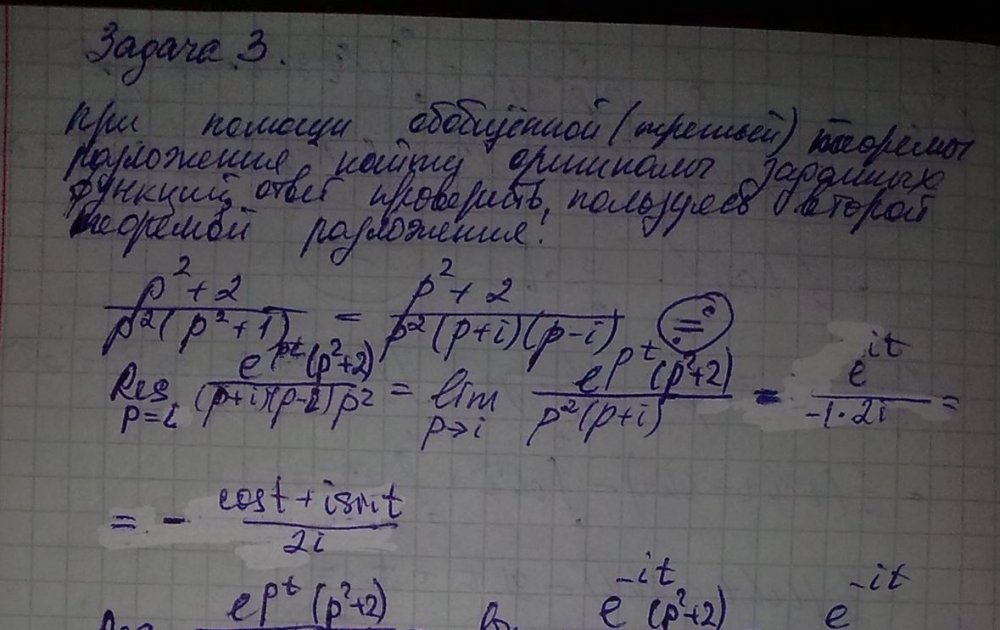 Задача 3.
При помощи обобщённой (третьей) теоремы
разложения найти оригиналы заданных
функций, ответ проверить, пользуясь второй
теоремой разложения:
p²+2 / p²(p²+1) = p²+2 / p²(p+i)(p-i) =
Res p=i e^pt(p²+2) / (p+i)(p-i)p² = lim p→i e^pt(p²+2) / p²(p+i) = e^it / -1·2i =
= - cost + isint / 2i
e^pt(p²+2) e^-it(p²+2) e^-it